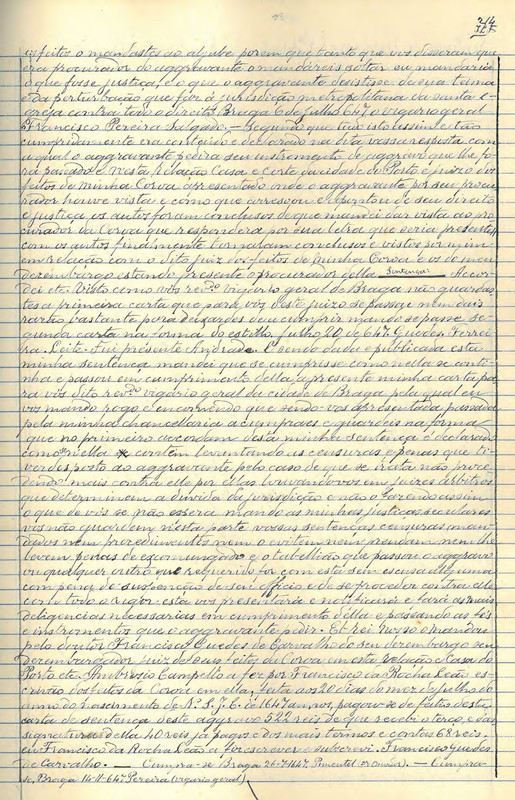 214
effeito o mandastes ao aljube porem que tanto que vos disseram que
era procurador do aggravante o mandareis soltar ou mandaria
o que fosse justiça, e o que o aggravante desistisse da sua teima
e da perturbação que fizera á jurisdicção metropolitana da santa e-
greja contra todo o direito. Braga 6 de julho 647. o vigario geral
Francisco Pereira Salgado. — Segundo que tudo isto assim e tão
cumpridamente era conteudo e declarado na dita vossa resposta com
a qual o aggravante pedira seu instromento de aggravo que lhe fo-
ra passado e nesta Relação Casa e Corte da cidade do Porto e juizo dos
feitos de minha Coroa apresentado onde o aggravante por seu procu-
rador houve vista e como que arresoou e apontou de seu direito
e justiça, os autos foram conclusos de que mandei dar vista ao pro-
curador da Coroa que respondera por sua letra que seria presente
com os quaes finalmente tornaram conclusos e vistos por mim
em relação com o dito juiz dos feitos de minha Coroa e os do meu
dezembargo estando presente o procurador della Sentença: Accor-
dei etc. Visto como vós redo vigario geral de Braga não guardas-
tes a primeira carta que para vós deste juizo se passou nem dais
rezão bastante para deixardes de a cumprir mando se passe se-
gunda carta na forma do estillo. julho 20 de 647. Guedes. Ferrei-
ra. Leite. Fui presente Andrade. E sendo dada e publicada esta
minha sentença mandei que se cumprisse como nella se conti-
nha e passou em cumprimento della a presente minha carta pa-
ra vós dito redo vigario geral da cidade de Braga pela qual eu
vos mando rogo e encommendo que sendo-vos apresentada passada
pela minha chancellaria a cumpraes e guardeis na forma
que no primeiro accordam desta minha sentença é declarado
como nella se contém levantando as censuras e penas que ti-
verdes posto ao aggravante pelo caso de que se trata não proce-
dendo mais contra elle por ellas louvando-vos em juizes arbitros
que determinem a duvida da jurisdição e não o fazendo assim
o que de vós se não espera mando ás minhas justiças seculares
vos não guardem n'esta parte vossas sentenças censuras man-
dados nem procedimentos nem o evitem nem prendam nem lhe
levem penas de excomungado e o tabellião que passou o aggravo
ou qualquer outro que requerido for com esta sem escusa alguma
com pena de suspenção de seu officio e de se proceder contra elle
com todo o rigor esta vos presentará e notificará e fará as mais
diligencias necessarias em cumprimento della e passando as fés
e instromentos que o aggravante pedir. El-rei nosso o mandou
pelo doutor Francisco Guedes de Carvalho do seu dezembargo seu
Dezembargador juiz de seus feitos da Coroa em esta Relação e Casa do
Porto etc. Ambrozio Campello a fez por Francisco da Rocha Leão es-
crivão dos feitos da Coroa em ella, feita aos 20 dias do mez de julho do
anno do nascimento de N. S. J. C. de 1647 annos, pagou-se de feitio desta
carta de sentença deste aggravo 522 reis de que recebi o terço, e da
signatura della 40 reis já pagos dos mais termos e contas 68 reis.
eu Francisco da Rocha Leão a fiz escrever e subscrevi. Francisco Guedes
de Carvalho. — Cumpra-se Braga 26-7-1647. Pimentel — Cumpra-
se, Braga 14-11-647. Pereira (vigario geral)